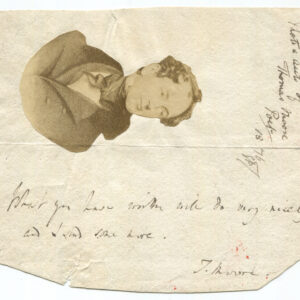 Photo & Auto of
Thomas Moore
Poet
18
What you have written will do very nicely
and I send some more.
T. Moore.